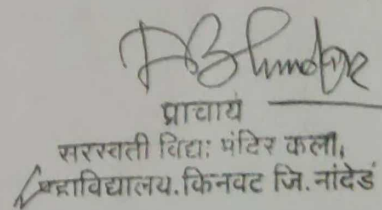 प्राचार्य
सरस्वती विद्या मंदिर कला,
महाविद्यालय.किनवट जि.नांदेड